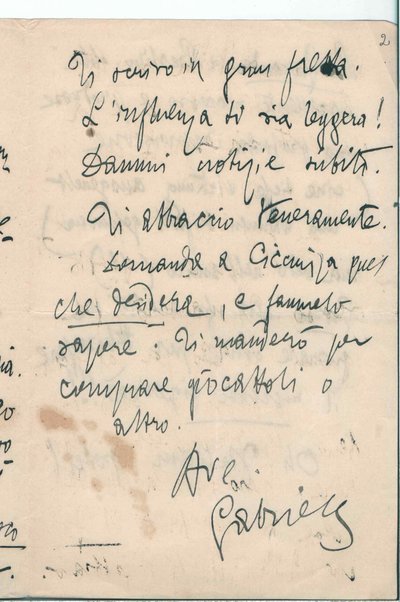 2
Ti scrivo in gran fretta.
L'influenza ti sia leggera!
Dammi notizie subito.
Ti abbraccio teneramente.
Domanda a Cicciuzza quel
che desidera, e fammelo
sapere. Ti manderò per
comprare giocattoli o
altro.
Ave.
Gabriele